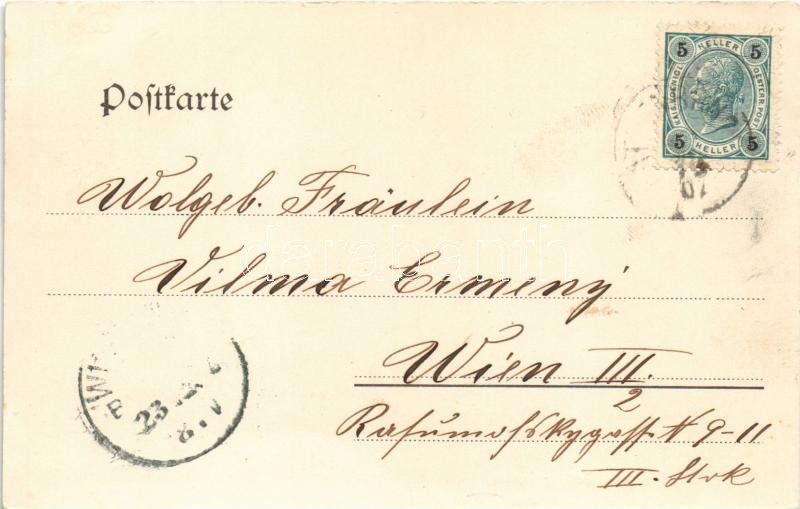 Postkarte
5 HELLER 5
KAIS. KOENIGL. OESTERR. POST
5 HELLER 5
Wolgeb. Fräulein
Vilma Ermenÿ
Wien III.
2
Rasumofskygasse № 9-11
III. Stok
07
WI
P
23
8.V